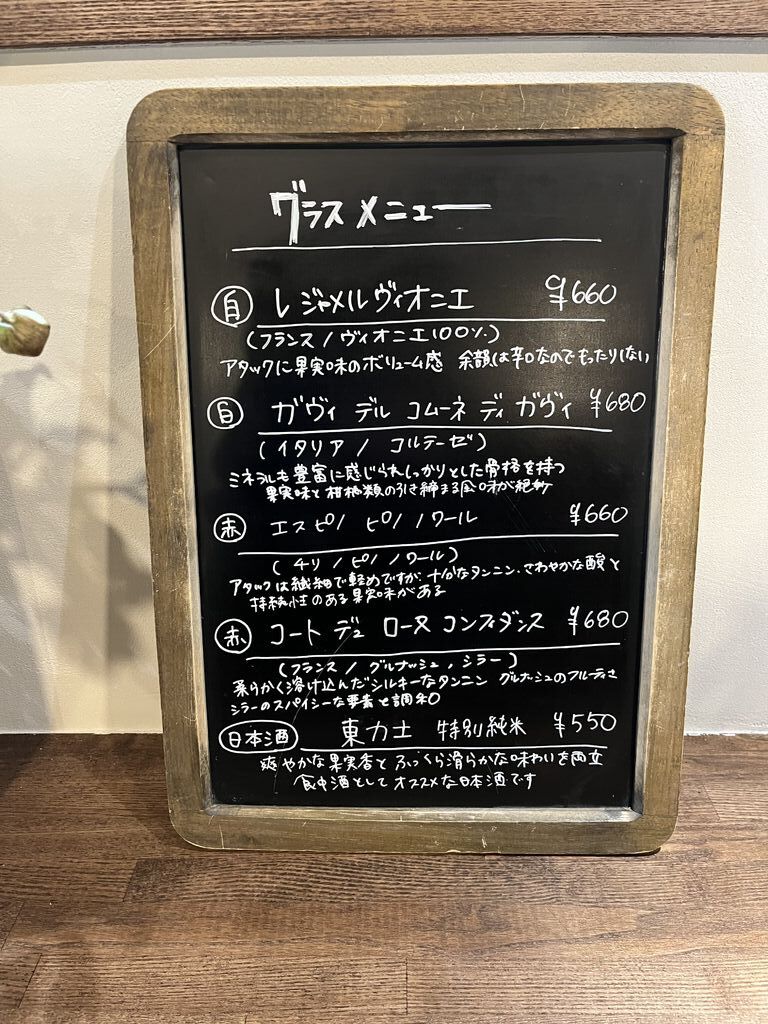 グラスメニュー
白 レ ジャメル ヴィオニエ ¥660
(フランス / ヴィオニエ100%)
アタックに果実味のボリューム感 余韻は辛口なのでもったりしない
白 ガヴィ デル コムーネ ディ ガヴィ ¥680
(イタリア / コルテーゼ)
ミネラルも豊富に感じられしっかりとした骨格を持つ
果実味と柑橘類の引き締まる風味が絶妙
赤 エスピノ ピノ ノワール ¥660
(チリ / ピノ ノワール)
アタックは繊細で軽めですが、十分なタンニン、さわやかな酸と
持続性のある果実味がある
赤 コート デュ ローヌ コンフィダンス ¥680
(フランス / グルナッシュ, シラー)
柔らかく溶け込んだシルキーなタンニン グルナッシュのフルーティさ
シラーのスパイシーな要素と調和
日本酒 東力士 特別純米 ¥550
爽やかな果実香と ふっくら滑らかな味わいを両立
食中酒としてオススメな日本酒です